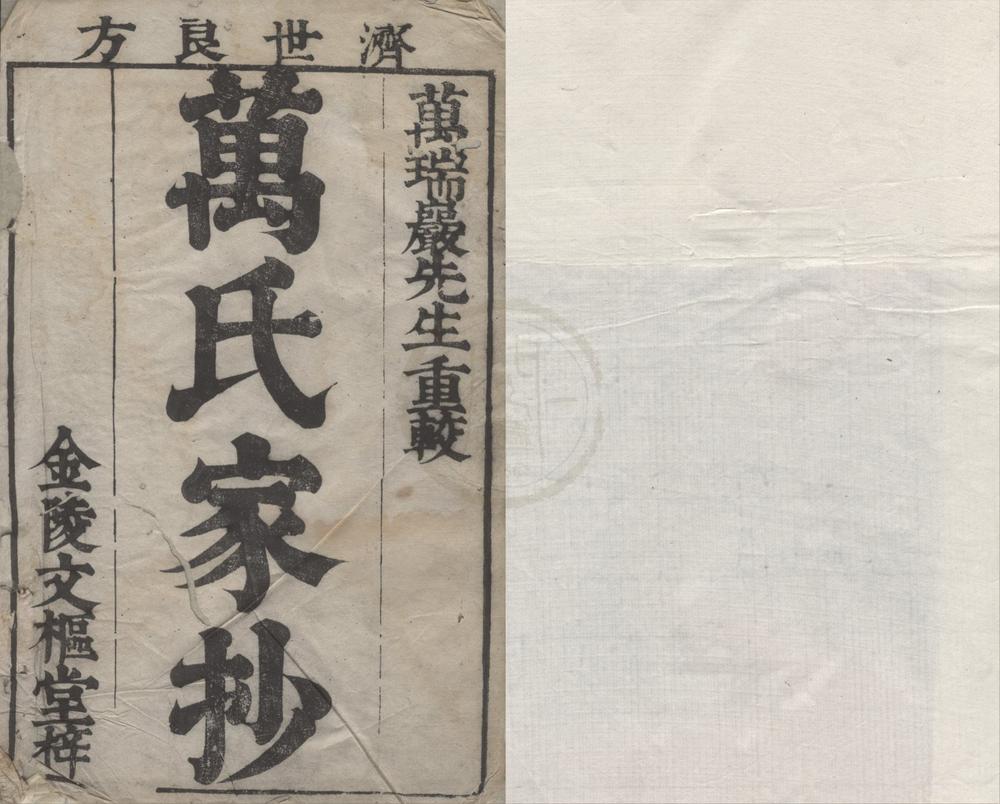 濟世良方
萬瑞巖先生重較
萬氏家抄
金陵文樞堂梓